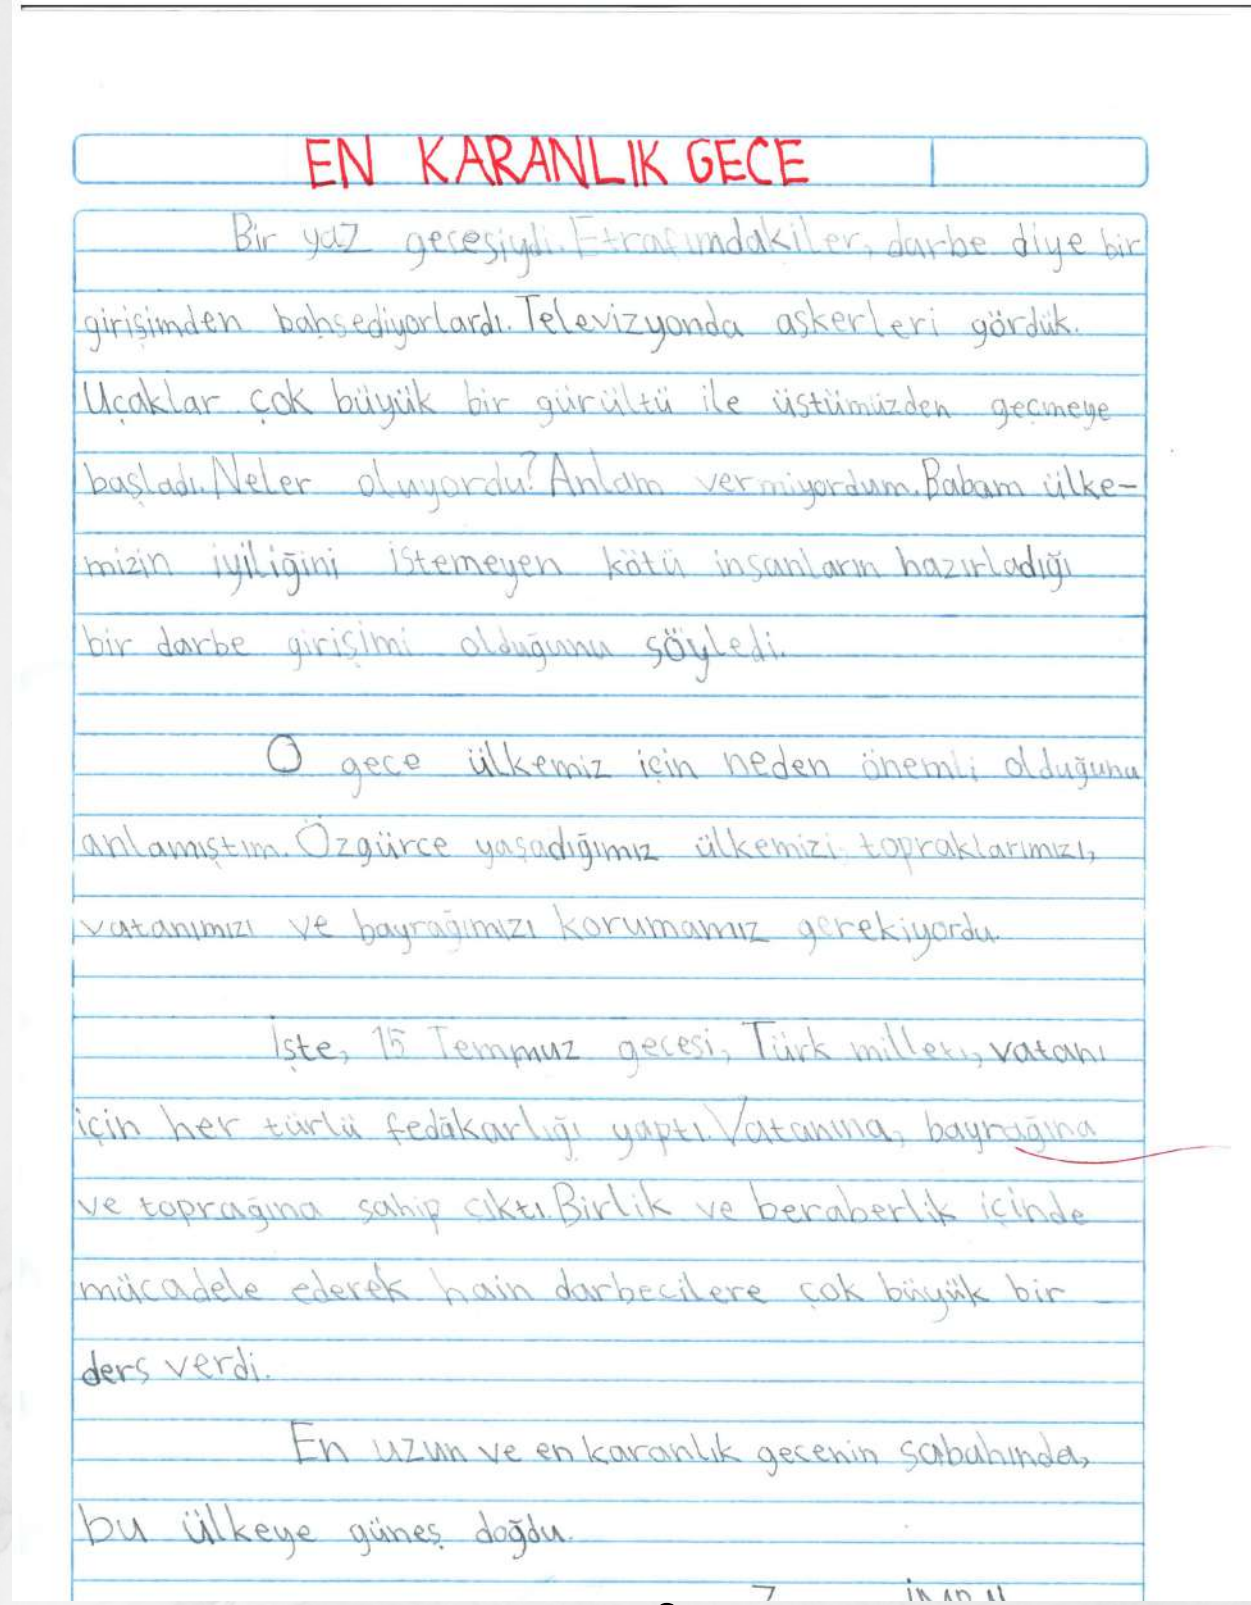 EN KARANLIK GECE
Bir yaz gecesiydi. Etrafımdakiler, darbe diye bir
girişimden bahsediyorlardı. Televizyonda askerleri gördük.
Uçaklar çok büyük bir gürültü ile üstümüzden geçmeye
başladı. Neler oluyordu? Anlam vermiyordum. Babam ülke-
mizin iyiliğini istemeyen kötü insanların hazırladığı
bir darbe girişimi olduğunu söyledi.
O gece ülkemiz için neden önemli olduğunu
anlamıştım. Özgürce yaşadığımız ülkemizi, topraklarımızı,
vatanımızı ve bayrağımızı korumamız gerekiyordu.
İşte, 15 Temmuz gecesi, Türk milleti, vatanı
için her türlü fedâkarlığı yaptı. Vatanına, bayrağına
ve toprağına sahip çıktı. Birlik ve beraberlik içinde
mücadele ederek hain darbecilere çok büyük bir
ders verdi.
En uzun ve en karanlık gecenin sabahında,
bu ülkeye güneş doğdu.